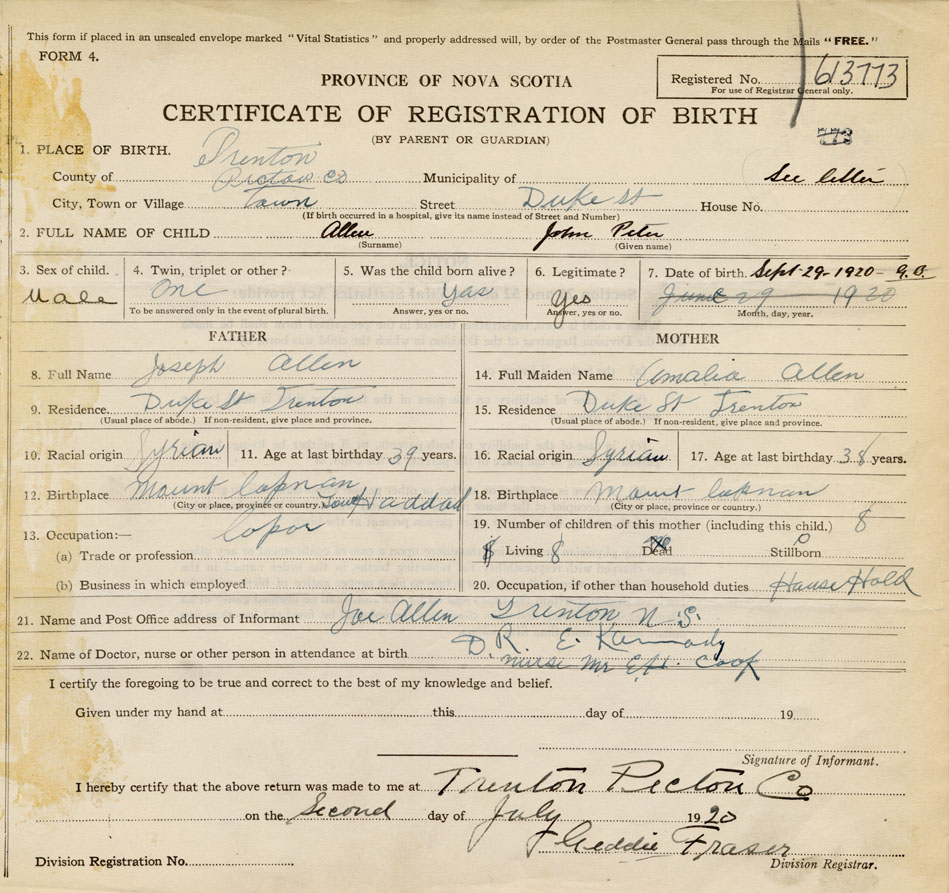 This form if placed in an unsealed envelope marked "Vital Statistics" and properly addressed will, by order of the Postmaster General pass through the Mails "FREE."
FORM 4.
PROVINCE OF NOVA SCOTIA
Registered No. 613773
For use of Registrar General only.
CERTIFICATE OF REGISTRATION OF BIRTH
(BY PARENT OR GUARDIAN)
1. PLACE OF BIRTH. Trenton
County of Pictow Co Municipality of See letter
City, Town or Village Town Street Duke St House No.
(If birth occurred in a hospital, give its name instead of Street and Number)
2. FULL NAME OF CHILD Allen John Peter
(Surname) (Given name)
3. Sex of child. 4. Twin, triplet or other? 5. Was the child born alive? 6. Legitimate? 7. Date of birth. Sept-29-1920-
Male One Yas Yes June 29 1920
To be answered only in the event of plural birth. Answer, yes or no. Answer, yes or no. Month, day, year.
FATHER MOTHER
8. Full Name Joseph Allen 14. Full Maiden Name Amalia Allen
9. Residence. Duke St Trenton 15. Residence Duke St Trenton
(Usual place of abode.) If non-resident, give place and province. (Usual place of abode.) If non-resident, give place and province.
10. Racial origin Syrian 11. Age at last birthday 39 years. 16. Racial origin Syrian 17. Age at last birthday 38 years.
12. Birthplace Mount Lapnan Haddad 18. Birthplace Mount Lapnan
(City or place, province or country.) (City or place, province or country.)
13. Occupation:— Lapor 19. Number of children of this mother (including this child.) 8
(a) Trade or profession 8 Living 8 Dead Stillborn o
(b) Business in which employed 20. Occupation, if other than household duties Hause Hold
21. Name and Post Office address of Informant Joe Allen Trenton N.S.
22. Name of Doctor, nurse or other person in attendance at birth D.R. E. Kannady
nurse Mr E.H. Cook
I certify the foregoing to be true and correct to the best of my knowledge and belief.
Given under my hand at this day of 19
Signature of Informant.
I hereby certify that the above return was made to me at Trenton Picton Co
on the Second day of July 1920
Geddie Fraser
Division Registration No. Division Registrar.